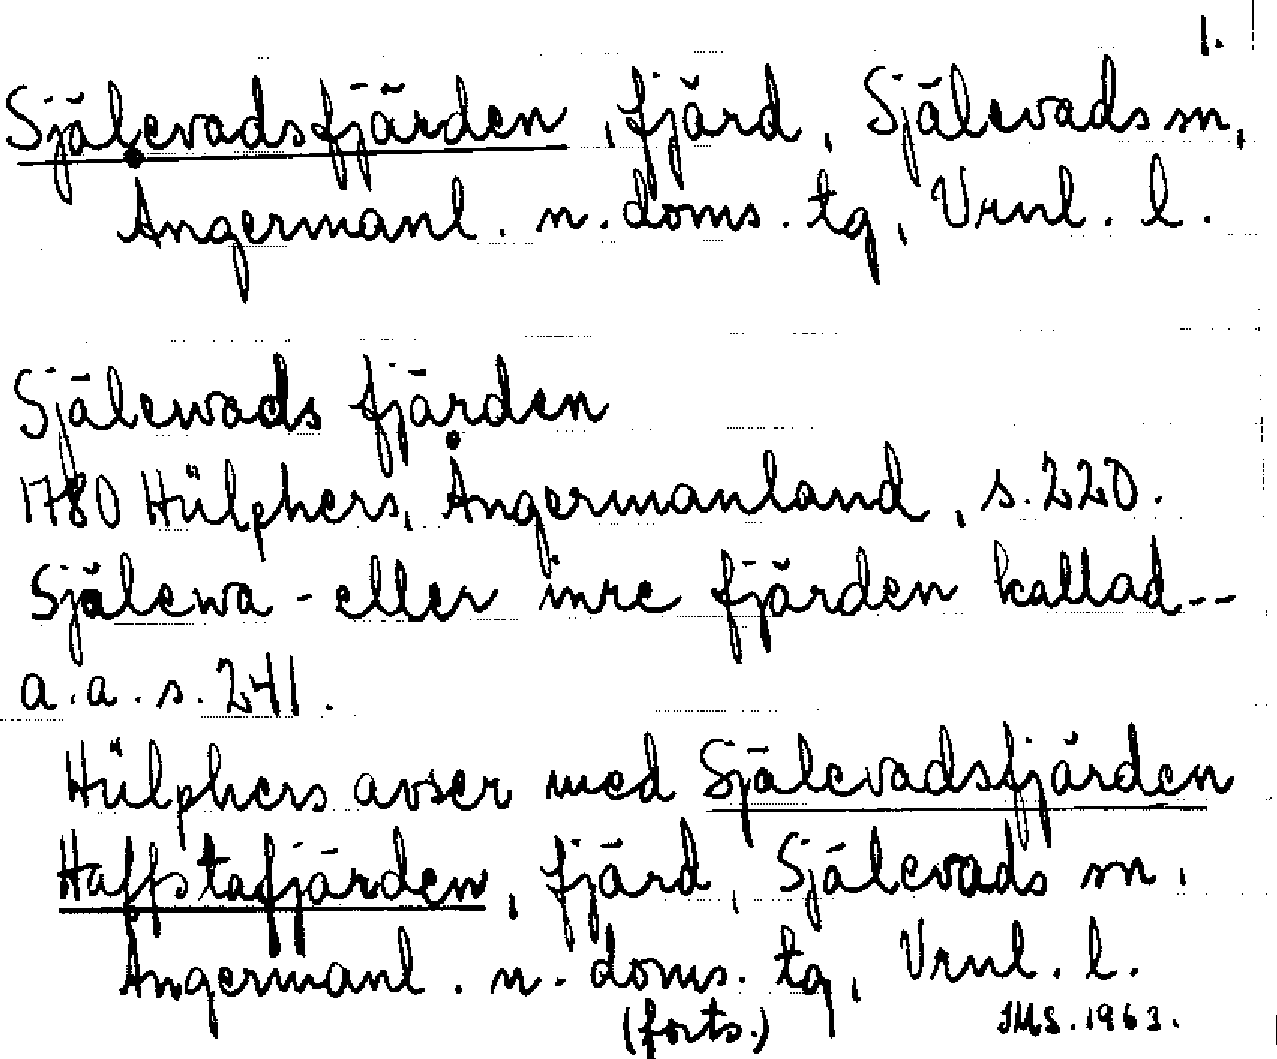 1.
Själevadsfjärden, fjärd, Själevads sn,
Ångermanl. n. doms. tg, Vrnl. l.
Själewads fjärden
1780 Hülphers, Ångermanland, s. 220.
Själewa - eller inre fjärden kallad--
a.a. s. 241.
Hülphers avser med Själevadsfjärden
Haffstafjärden, fjärd, Själevads sn,
Ångermanl. n. doms. tg, Vrnl. l.
(forts.) IMS. 1963.